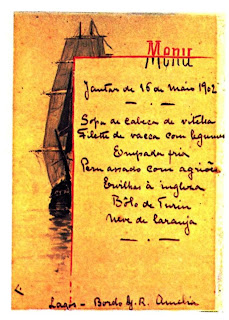 Menu
Menu
Jantar de 16 de Maio 1902
Sopa de cabeça de vitella
Filette de vacca com legumes
Empada fria
Peru assado com agriões
Ervilhas à ingleza
Bôlo de Turin
Neve de laranja
Lagos - Bordo Y. R. Amelia